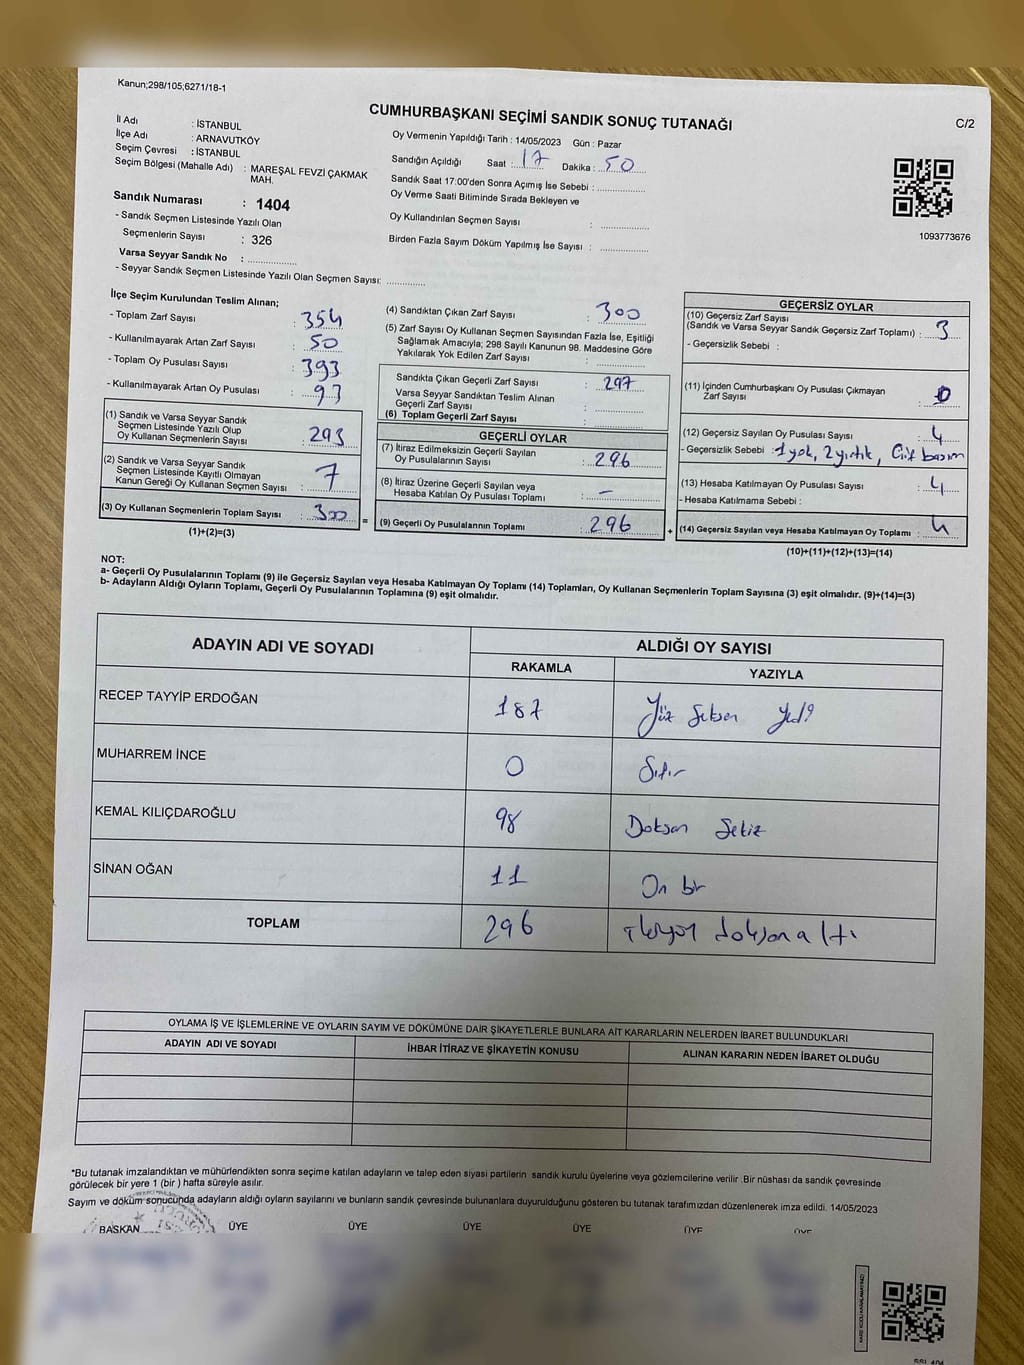 Kanun;298/105;6271/18-1
CUMHURBAŞKANI SEÇİMİ SANDIK SONUÇ TUTANAĞI
C/2
İl Adı : İSTANBUL
İlçe Adı : ARNAVUTKÖY
Seçim Çevresi : İSTANBUL
Seçim Bölgesi (Mahalle Adı) : MAREŞAL FEVZİ ÇAKMAK MAH.
Sandık Numarası : 1404
- Sandık Seçmen Listesinde Yazılı Olan
Seçmenlerin Sayısı : 326
Varsa Seyyar Sandık No : ..............
- Seyyar Sandık Seçmen Listesinde Yazılı Olan Seçmen Sayısı: ............
Oy Vermenin Yapıldığı Tarih : 14/05/2023 Gün : Pazar
Sandığın Açıldığı Saat : 17 Dakika : 50
Sandık Saat 17:00'den Sonra Açımış İse Sebebi : ..............
Oy Verme Saati Bitiminde Sırada Bekleyen ve
Oy Kullandırılan Seçmen Sayısı : ..............
Birden Fazla Sayım Döküm Yapılmış İse Sayısı : ..............
1093773676
İlçe Seçim Kurulundan Teslim Alınan;
- Toplam Zarf Sayısı : 354
- Kullanılmayarak Artan Zarf Sayısı : 50
- Toplam Oy Pusulası Sayısı : 393
- Kullanılmayarak Artan Oy Pusulası : 93
(1) Sandık ve Varsa Seyyar Sandık
Seçmen Listesinde Yazılı Olup
Oy Kullanan Seçmenlerin Sayısı : 293
(2) Sandık ve Varsa Seyyar Sandık
Seçmen Listesinde Kayıtlı Olmayan
Kanun Gereği Oy Kullanan Seçmen Sayısı : 7
(3) Oy Kullanan Seçmenlerin Toplam Sayısı : 300 =
(1)+(2)=(3)
(4) Sandıktan Çıkan Zarf Sayısı : 300
(5) Zarf Sayısı Oy Kullanan Seçmen Sayısından Fazla İse, Eşitliği
Sağlamak Amacıyla; 298 Sayılı Kanunun 98. Maddesine Göre
Yakılarak Yok Edilen Zarf Sayısı : ..............
Sandıkta Çıkan Geçerli Zarf Sayısı : 297
Varsa Seyyar Sandıktan Teslim Alınan
Geçerli Zarf Sayısı : ..............
(6) Toplam Geçerli Zarf Sayısı : ..............
GEÇERLİ OYLAR
(7) İtiraz Edilmeksizin Geçerli Sayılan
Oy Pusulalarının Sayısı : 296
(8) İtiraz Üzerine Geçerli Sayılan veya
Hesaba Katılan Oy Pusulası Toplamı : –
(9) Geçerli Oy Pusulalarının Toplamı : 296 +
GEÇERSİZ OYLAR
(10) Geçersiz Zarf Sayısı
(Sandık ve Varsa Seyyar Sandık Geçersiz Zarf Toplamı) : 3
- Geçersizlik Sebebi :
(11) İçinden Cumhurbaşkanı Oy Pusulası Çıkmayan
Zarf Sayısı : 0
(12) Geçersiz Sayılan Oy Pusulası Sayısı : 4
- Geçersizlik Sebebi : 1 yok, 2 yırtık, Çift basım
(13) Hesaba Katılmayan Oy Pusulası Sayısı : 4
- Hesaba Katılmama Sebebi :
(14) Geçersiz Sayılan veya Hesaba Katılmayan Oy Toplamı : 4
(10)+(11)+(12)+(13)=(14)
NOT:
a- Geçerli Oy Pusulalarının Toplamı (9) ile Geçersiz Sayılan veya Hesaba Katılmayan Oy Toplamı (14) Toplamları, Oy Kullanan Seçmenlerin Toplam Sayısına (3) eşit olmalıdır. (9)+(14)=(3)
b- Adayların Aldığı Oyların Toplamı, Geçerli Oy Pusulalarının Toplamına (9) eşit olmalıdır.
ADAYIN ADI VE SOYADI
ALDIĞI OY SAYISI
RAKAMLA YAZIYLA
RECEP TAYYİP ERDOĞAN 187 Yüz Seksen Yedi
MUHARREM İNCE 0 Sıfır
KEMAL KILIÇDAROĞLU 98 Doksan Sekiz
SİNAN OĞAN 11 On bir
TOPLAM 296 ikiyüz doksan altı
OYLAMA İŞ VE İŞLEMLERİNE VE OYLARIN SAYIM VE DÖKÜMÜNE DAİR ŞİKAYETLERLE BUNLARA AİT KARARLARIN NELERDEN İBARET BULUNDUKLARI
ADAYIN ADI VE SOYADI İHBAR İTİRAZ VE ŞİKAYETİN KONUSU ALINAN KARARIN NEDEN İBARET OLDUĞU
*Bu tutanak imzalandıktan ve mühürlendikten sonra seçime katılan adayların ve talep eden siyasi partilerin sandık kurulu üyelerine veya gözlemcilerine verilir. Bir nüshası da sandık çevresinde
görülecek bir yere 1 (bir ) hafta süreyle asılır.
Sayım ve döküm sonucunda adayların aldığı oyların sayılarını ve bunların sandık çevresinde bulunanlara duyurulduğunu gösteren bu tutanak tarafımızdan düzenlenerek imza edildi. 14/05/2023
BAŞKAN ÜYE ÜYE ÜYE ÜYE ÜYE ÜYE